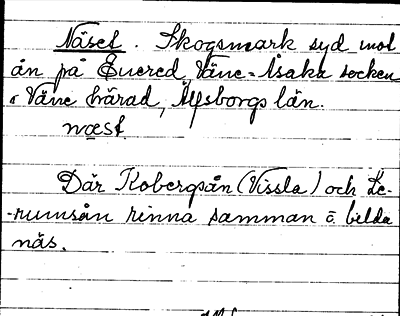 Näset. Skogsmark syd mot
ån på Euered, Väne-Åsaka socken
i Väne härad, Älfsborgs län.
næst
Där Kobergsån (Vissla) och Le-
-rumsån rinna samman o. bilda
näs.